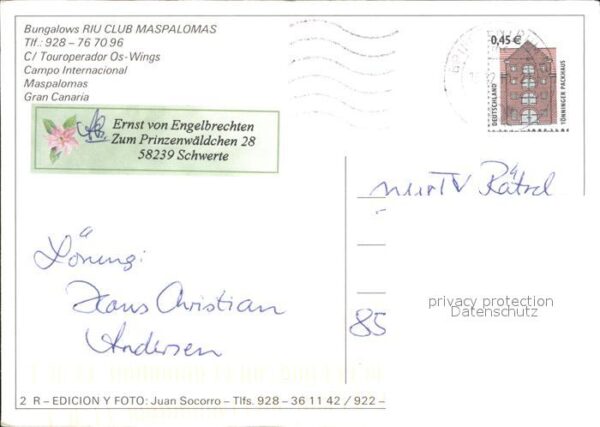 Bungalows RIU CLUB MASPALOMAS
Tlf.: 928 - 76 70 96
C/ Touroperador Os-Wings
Campo Internacional
Maspalomas
Gran Canaria
0,45 €
DEUTSCHLAND
TÖNNINGER PACKHAUS
Ernst von Engelbrechten
Zum Prinzenwäldchen 28
58239 Schwerte
TV Rätsel
Lösung:
Hans Christian
Andersen
85
privacy protection
Datenschutz
2 R – EDICION Y FOTO: Juan Socorro – Tlfs. 928 – 36 11 42 / 922 –